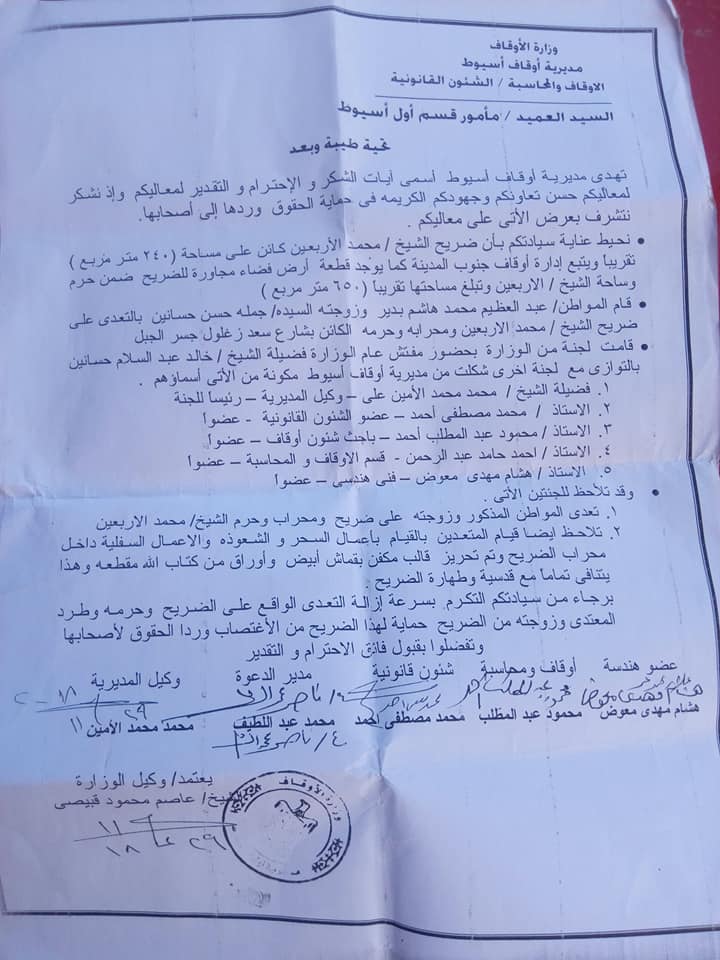 وزارة الأوقاف
مديرية أوقاف أسيوط
الاوقاف والمحاسبة / الشئون القانونية
السيد العميد / مأمور قسم أول أسيوط
تحية طيبة وبعد
تهدى مديرية أوقاف أسيوط أسمى آيات الشكر و الإحترام و التقدير لمعاليكم وإذ نشكر
لمعاليكم حسن تعاونكم وجهودكم الكريمه فى حماية الحقوق وردها إلى أصحابها.
نتشرف بعرض الأتى على معاليكم .
• نحيط عناية سيادتكم بأن ضريح الشيخ / محمد الأربعين كائن على مساحة (٢٤٠ متر مربع )
تقريباً ويتبع إدارة أوقاف جنوب المدينة كما يوجد قطعة أرض فضاء مجاورة للضريح ضمن حرم
وساحة الشيخ / الاربعين وتبلغ مساحتها تقريباً (٦٥٠ متر مربع )
• قام المواطن/ عبد العظيم محمد هاشم بدير وزوجته السيده/ جمله حسن حسانين بالتعدى على
ضريح الشيخ / محمد الاربعين ومحرابه وحرمه الكائن بشارع سعد زغلول جسر الجبل
• قامت لجنة من الوزارة بحضور مفتش عام الوزارة فضيلة الشيخ / خالد عبد السلام حسانين
بالتوازى مع لجنة اخرى شكلت من مديرية أوقاف أسيوط مكونة من الأتى أسماؤهم .
١. فضيلة الشيخ / محمد محمد الأمين على – وكيل المديرية – رئيساً للجنة
٢. الاستاذ / محمد مصطفى أحمد – عضو الشئون القانونية - عضواً
٣. الاستاذ / محمود عبد المطلب أحمد – باحث شئون أوقاف – عضواً
٤. الاستاذ / احمد حامد عبد الرحمن - قسم الاوقاف و المحاسبة – عضواً
٥. الاستاذ / هشام مهدى معوض – فنى هندسى – عضواً
• وقد تلاحظ للجنتين الأتى .
١. تعدى المواطن المذكور وزوجته على ضريح ومحراب وحرم الشيخ/ محمد الاربعين
٢. تلاحظ ايضا قيام المتعدين بالقيام بأعمال السحر و الشعوذه والاعمال السفلية داخل
محراب الضريح وتم تحريز قالب مكفن بقماش أبيض وأوراق من كتاب الله مقطعه وهذا
يتنافى تماماً مع قدسية وطهارة الضريح .
برجاء من سيادتكم التكرم بسرعة إزالة التعدى الواقع على الضريح وحرمه وطرد
المعتدى وزوجته من الضريح حماية لهذا الضريح من الأغتصاب وردا الحقوق لأصحابها
وتفضلوا بقبول فائق الاحترام و التقدير
عضو هندسة أوقاف ومحاسبة شئون قانونية مدير الدعوة وكيل المديرية
هشام مهدى معوض محمود عبد المطلب محمد مصطفى أحمد محمد عبد اللطيف محمد محمد الأمين
يعتمد/ وكيل الوزارة
شيخ/ عاصم محمود قبيصى
وزارة الأوقاف